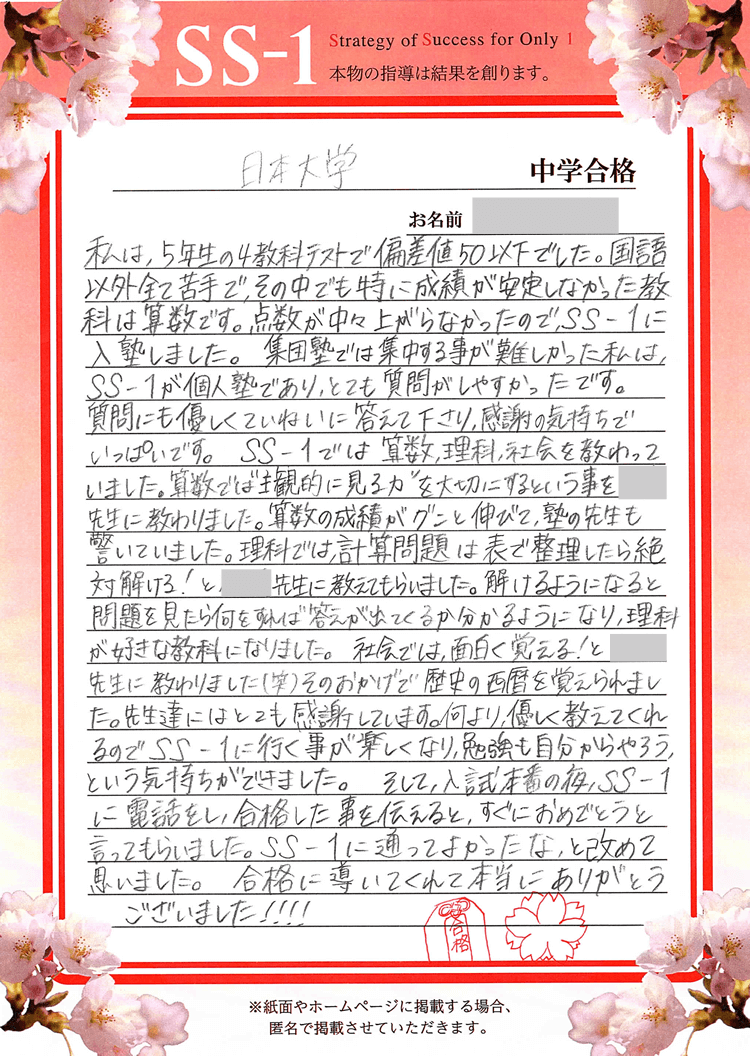 SS-1 Strategy of Success for Only 1
本物の指導は結果を創ります。
日本大学 中学合格
お名前
私は、5年生の4教科テストで偏差値50以下でした。国語
以外全て苦手で、その中でも特に成績が安定しなかった教
科は算数です。点数が中々上がらなかったので、SS-1に
入塾しました。 集団塾では集中する事が難しかった私は、
SS-1が個人塾であり、とても質問がしやすかったです。
質問にも優しくていねいに答えて下さり、感謝の気持ちで
いっぱいです。 SS-1では算数、理科、社会を教わって
いました。算数では"主観的に見る力"を大切にするという事を
先生に教わりました。算数の成績がグンと伸びて、塾の先生も
驚いていました。理科では、計算問題は表で整理したら絶
対解ける!と、 先生に教えてもらいました。解けるようになると
問題を見たら何をすれば答えが出てくるか分かるようになり、理科
が好きな教科になりました。 社会では、面白く覚える!と
先生に教わりました(笑)そのおかげで歴史の西暦を覚えられまし
た。先生達にはとても感謝しています。何より、優しく教えてくれ
るのでSS-1に行く事が楽しくなり、勉強も自分からやろう、
という気持ちができました。 そして、入試本番の夜、SS-1
に電話をし、合格した事を伝えると、すぐにおめでとうと
言ってもらいました。SS-1に通ってよかったな、と改めて
思いました。 合格に導いてくれて本当にありがとう
ございました!!!!
合格
※紙面やホームページに掲載する場合、
匿名で掲載させていただきます。